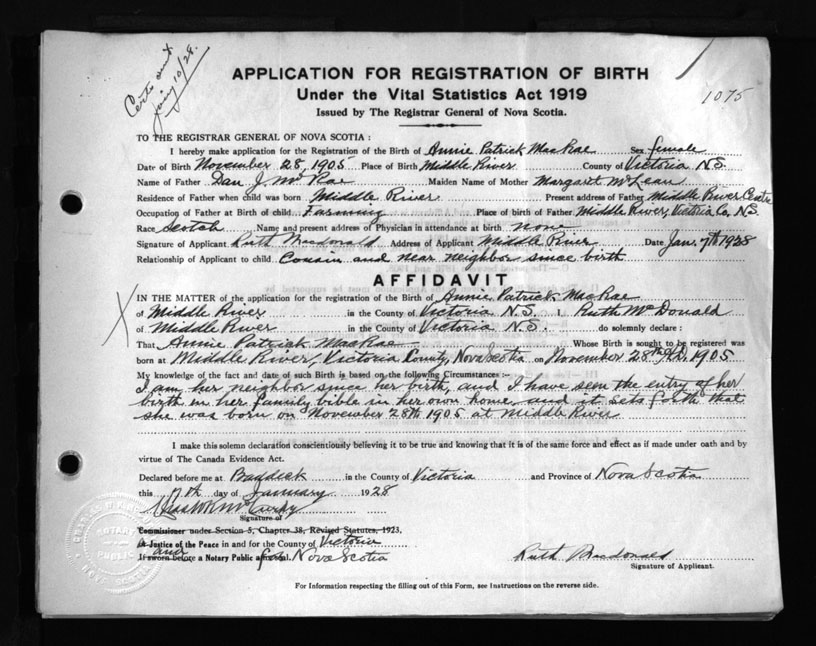 Certs sent
jany 10/28.
1075
APPLICATION FOR REGISTRATION OF BIRTH
Under the Vital Statistics Act 1919
Issued by The Registrar General of Nova Scotia.
TO THE REGISTRAR GENERAL OF NOVA SCOTIA :
I hereby make application for the Registration of the Birth of Annie Patrick MacRae Sex female
Date of Birth November 28, 1905 Place of Birth Middle River County of Victoria N.S.
Name of Father Dan J. McRae Maiden Name of Mother Margaret McLean
Residence of Father when child was born Middle River Present address of Father Middle River Centre
Occupation of Father at Birth of child Farming Place of birth of Father Middle River, Victoria Co, N.S.
Race Scotch Name and present address of Physician in attendance at birth none
Signature of Applicant Ruth Macdonald Address of Applicant Middle River Date Jan. 7th 1928
Relationship of Applicant to child Cousin and near neighbor since birth
AFFIDAVIT
IN THE MATTER of the application for the registration of the Birth of Annie Patrick MacRae
of Middle River in the County of Victoria N.S. I, Ruth McDonald
of Middle River in the County of Victoria N.S. do solemnly declare :
That Annie Patrick MacRae Whose Birth is sought to be registered was
born at Middle River, Victoria County, Nova Scotia on November 28th 1905
My knowledge of the fact and date of such Birth is based on the following Circumstances :-
I am her neighbor since her birth, and I have seen the entry of her
birth in her family bible in her own home and it sets forth that
she was born on November 28th 1905 at Middle River
I make this solemn declaration conscientiously believing it to be true and knowing that it is of the same force and effect as if made under oath and by
virtue of The Canada Evidence Act.
Declared before me at Baddeck in the County of Victoria and Province of Nova Scotia
this 7th day of January 1928
Signature of
Commissioner under Section 5, Chapter 38, Revised Statutes, 1923,
Justice of the Peace in and for the County of Victoria
If sworn before a Notary Public for Nova Scotia
Ruth Macdonald
Signature of Applicant.
For Information respecting the filling out of this Form, see Instructions on the reverse side.